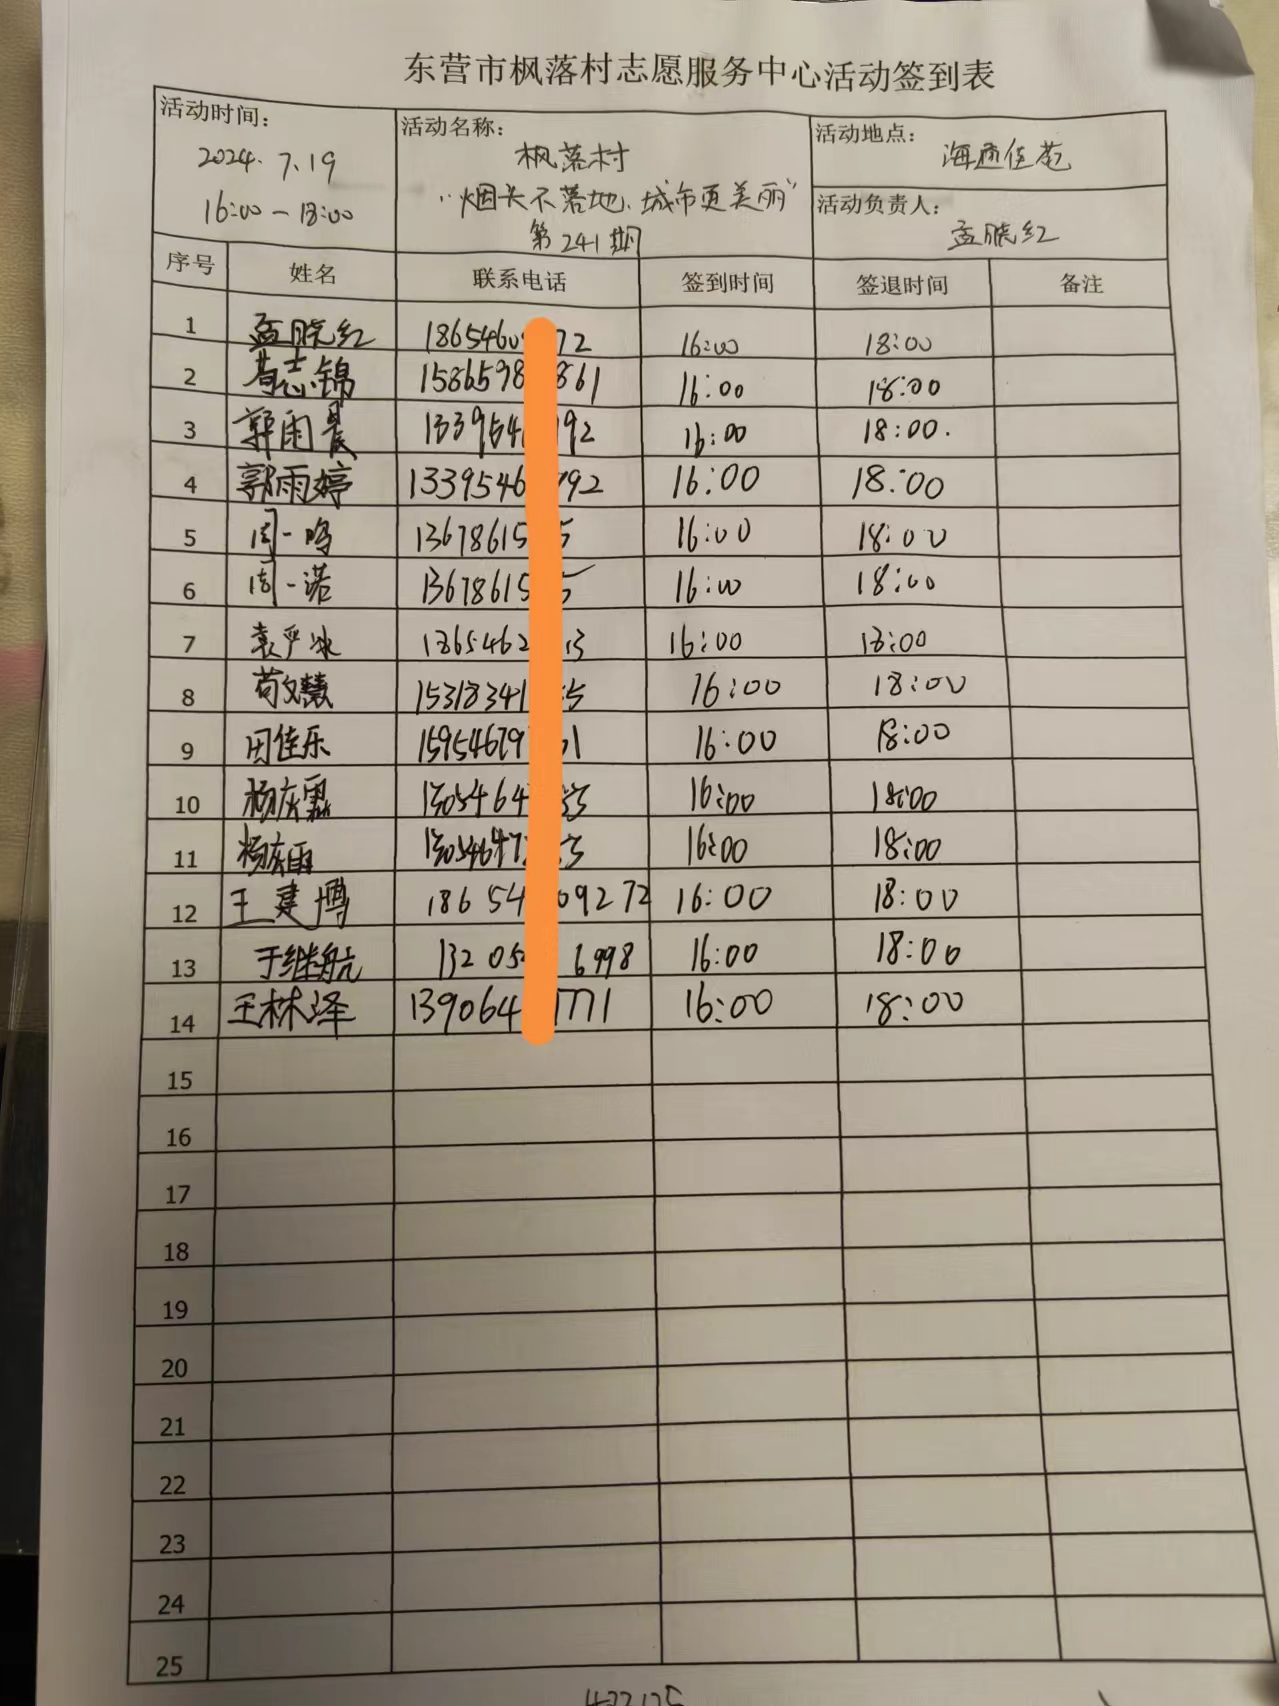 东营市枫落村志愿服务中心活动签到表
活动时间：
2024.7.19
16:00-18:00
活动名称：
枫落村
“烟头不落地、城市更美丽”
第241期
活动地点：
海通佳苑
活动负责人：
孟晓红
序号 姓名 联系电话 签到时间 签退时间 备注
1 孟晓红 1865460 72 16:00 18:00
2 志锦 1586598 861 16:00 18:00
3 郭雨晨 1339546 92 16:00 18:00.
4 郭雨婷 1339546 792 16:00 18:00
5 周一鸣 13678615 5 16:00 18:00
6 周一诺 13678615 5 16:00 18:00
7 袁严冰 1865462 13 16:00 18:00
8 苟文慧 15318341 55 16:00 18:00
9 田佳乐 15954679 61 16:00 18:00
10 杨庆霖 1305464 53 16:00 18:00
11 杨庆雨 13054647 53 16:00 18:00
12 王建博 18654 09272 16:00 18:00
13 于继航 13205 6998 16:00 18:00
14 王林泽 139064 1771 16:00 18:00
15
16
17
18
19
20
21
22
23
24
25